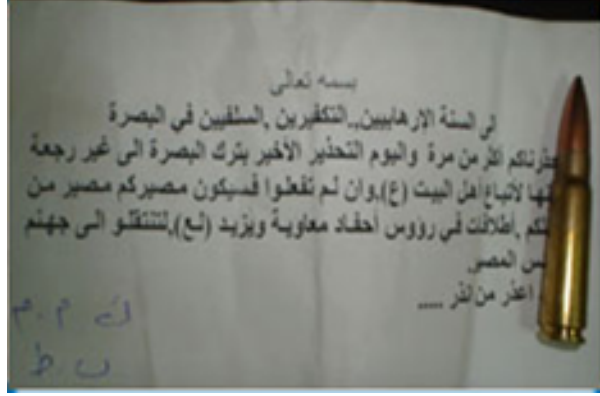 بسمه تعالى
لى السنة الإرهابيين,,التكفيرين ,السلفيين في البصرة
حذرناكم أكثر من مرة واليوم التحذير الأخير بترك البصرة الى غير رجعة
لأتباع أهل البيت (ع),وان لم تفعلوا فسيكون مصيركم مصير من
أطلاقات في رؤوس أحفاد معاوية ويزيد (لع),لتنتقلو الى جهنم
المصير
اعذر من انذر .....
ك م . م
ب . ط